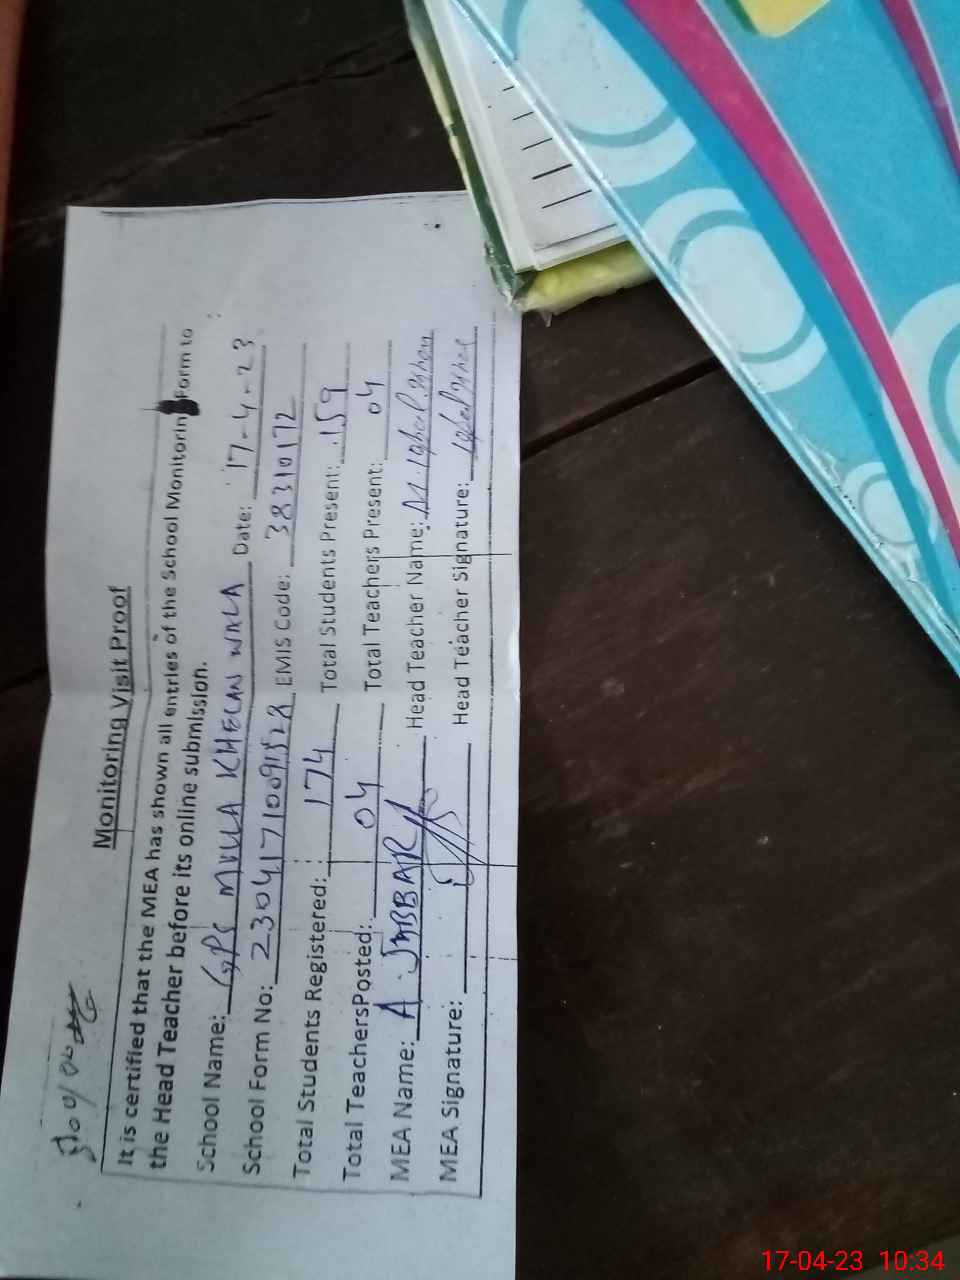 Monitoring Visit Proof
It is certified that the MEA has shown all entries of the School Monitorin Form to
the Head Teacher before its online submission.
School Name: GPS MULLA KHELAN WALA Date: 17-4-23
School Form No: EMIS Code: 38310172
Total Students Registered: 174 Total Students Present: 159
Total TeachersPosted: 04 Total Teachers Present: 04
MEA Name: A. JABBAR Head Teacher Name: M. Iqbal Khan
MEA Signature: Head Teacher Signature: Iqbal Khan
17-04-23 10:34